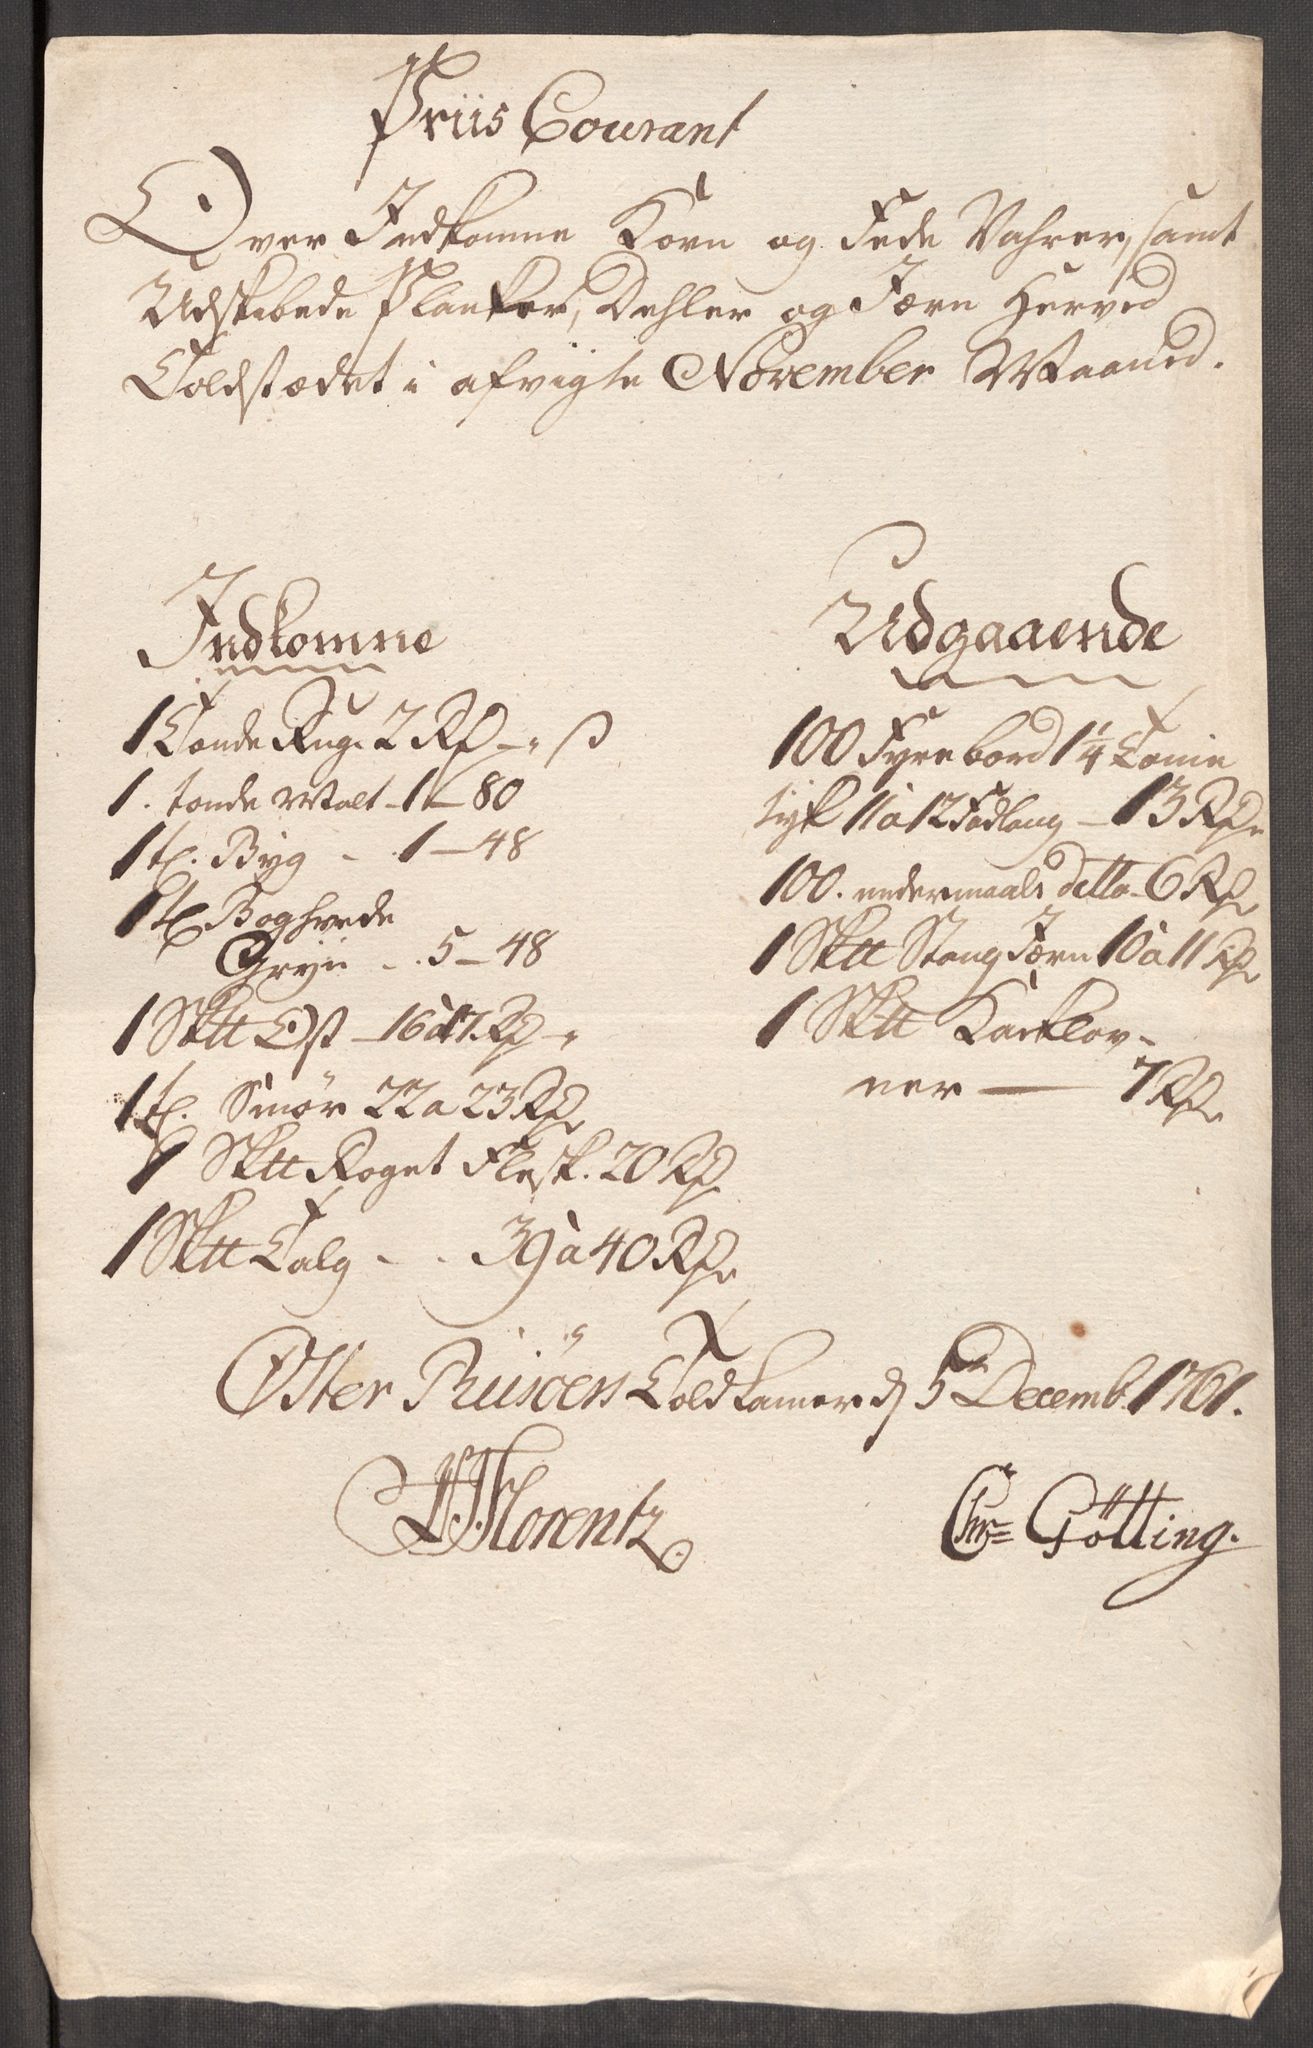 Priis Courant
Over Indkomne Korn og Fede Vahrer, samt
Udskibede Planker, Dehler og Jærn Herved
Toldstædet i afvigte November Maaned.
Indkomne
1 Tønde Rug. 2 Rd - " ß
1. tønde Malt - 1 - 80
1 td. Byg - 1 - 48
1 td Boghvede
Gryn - . 5 - 48
1 Sktt Ost - 16 à 17. Rd - "
1 td. Smør 22 a 23 Rd
1 Sktt Røget Flesk. 20 Rd
1 Sktt Talg - . 39 à 40 Rd
Udgaaende
100 Fyrrebord 1 1/4 Tomme
tyk 11 a 12 Fod lang - 13 Rd
100. undermaals detto - 6 Rd
1 Sktt Stang Jærn 10 à 11 Rd
1 Sktt Kackelov-
ner - 7 Rd
Øster Riisöers Toldkamer d 5te Decemb. 1761.
Florentz
Chr= Götting.